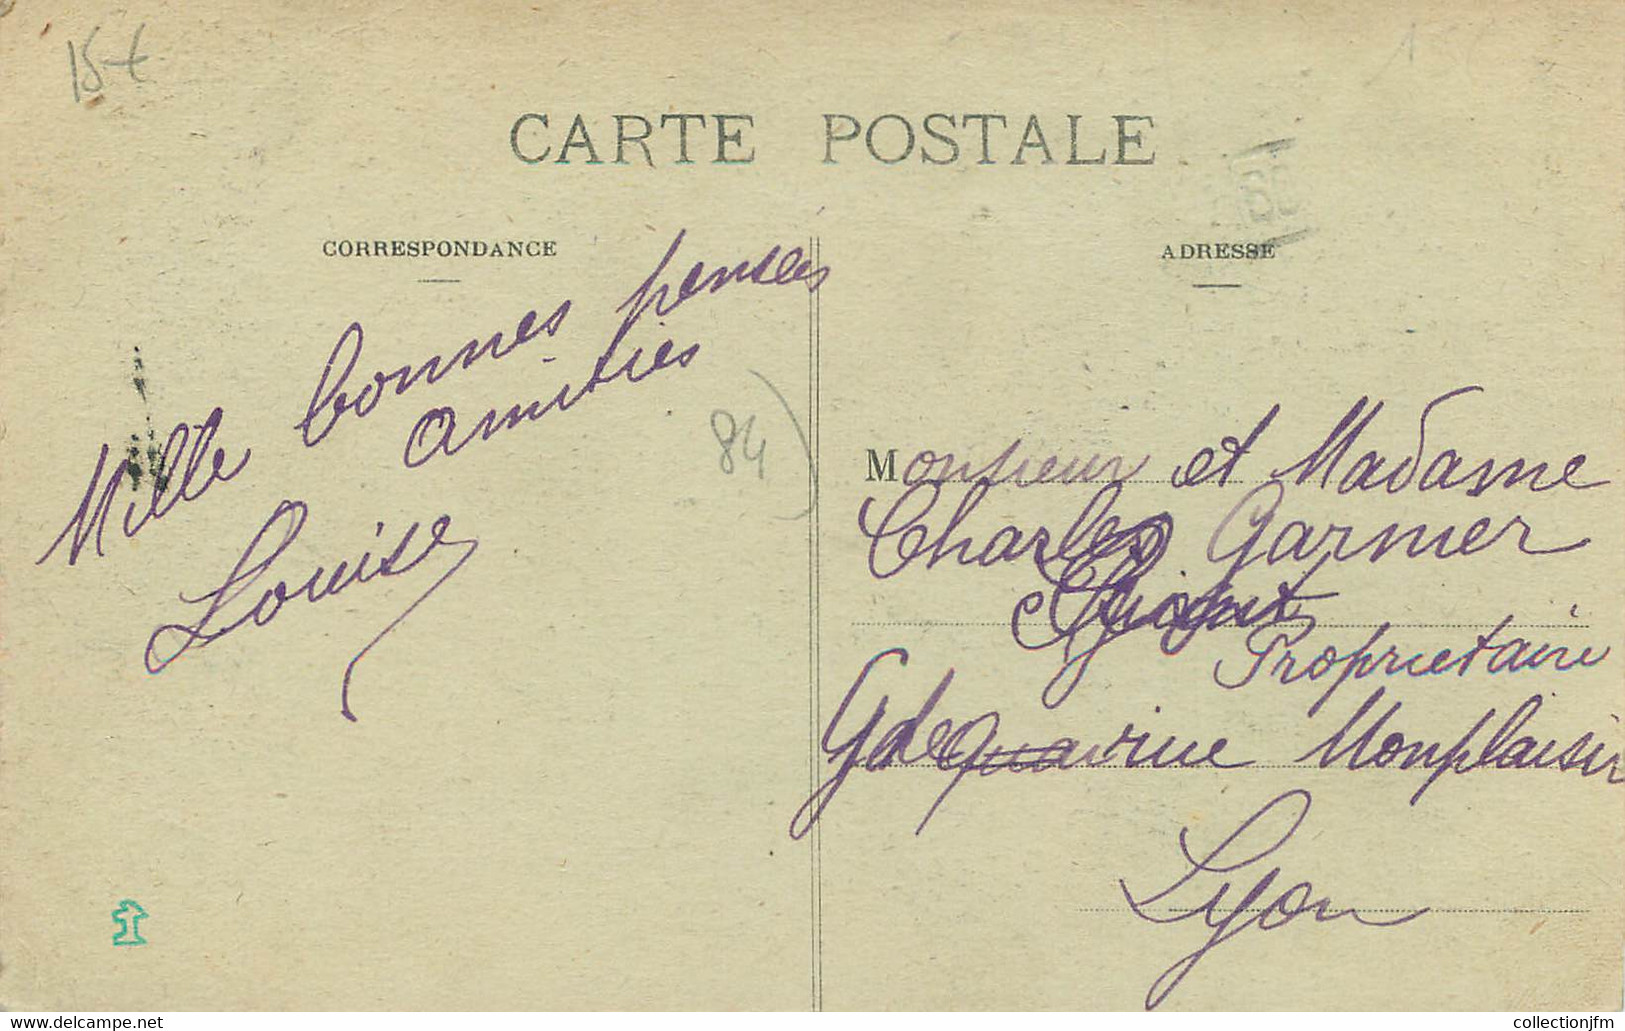 15 €
CARTE POSTALE
CORRESPONDANCE
Mille bonnes pensées
amitiés
Louise
84
ADRESSE
Monsieur et Madame
Charles Garnier
Propriétaire
Gde rue Monplaisir
Lyon
www.delcampe.net
collectionjfm